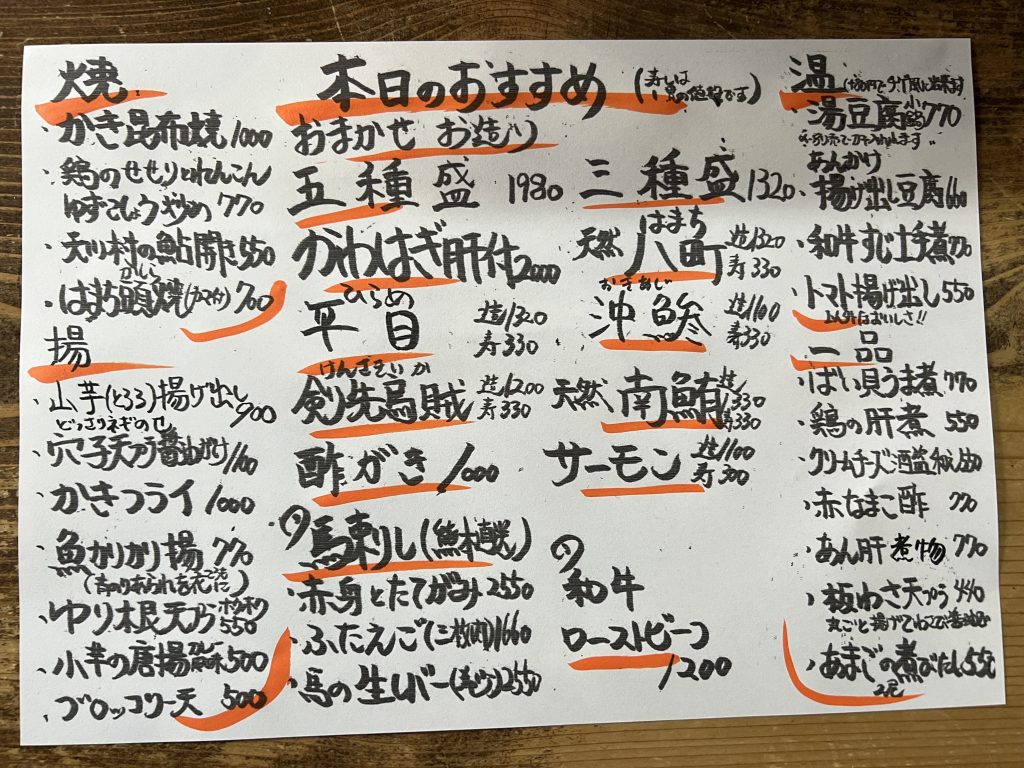 焼
かき昆布焼 1000
鶏のせせりとれんこん
ゆずこしょう炒め 770
天川村の鮎開き 550
かしら
はまち頭焼(カマ付) 700
揚
山芋(とろろ)揚げ出し
どっさりネギのせ 900
穴子天プラ 醤油がけ 1100
かきフライ 1000
魚かりかり揚 770
ゆり根天プラ ホクホク 550
小芋の唐揚 500
ブロッコリー天 500
本日のおすすめ
おまかせ お造り
五種盛 1980
三種盛 1320
かわはぎ肝付 2000
はまち
天然 八町 造1320 寿330
ひらめ
平目 造1320 寿330
おきあじ
沖鯵 造1100 寿330
けんさきいか
剣先烏賊 造1200 寿330
天然 南鮪 造1330 寿330
酢がき 1000
サーモン 造1100 寿300
の馬刺し(熊本直送)
赤身とたてがみ 2550
ふたえご(三枚肉) 1660
馬の生レバー 2550
の
和牛
ローストビーフ
1200
温
湯豆腐 770
あんかけ
揚げ出し豆腐 660
和牛すじ土手煮 770
トマト揚げ出し 550
以外なおいしさ!!
一品
ばい貝うま煮 770
鶏の肝煮 550
クリームチーズ酒盗和え 550
赤なまこ酢 770
あん肝煮物 770
板わさ天プラ 440
丸ごと揚げてわさび醤油
あまごの煮びたし 550
2尾